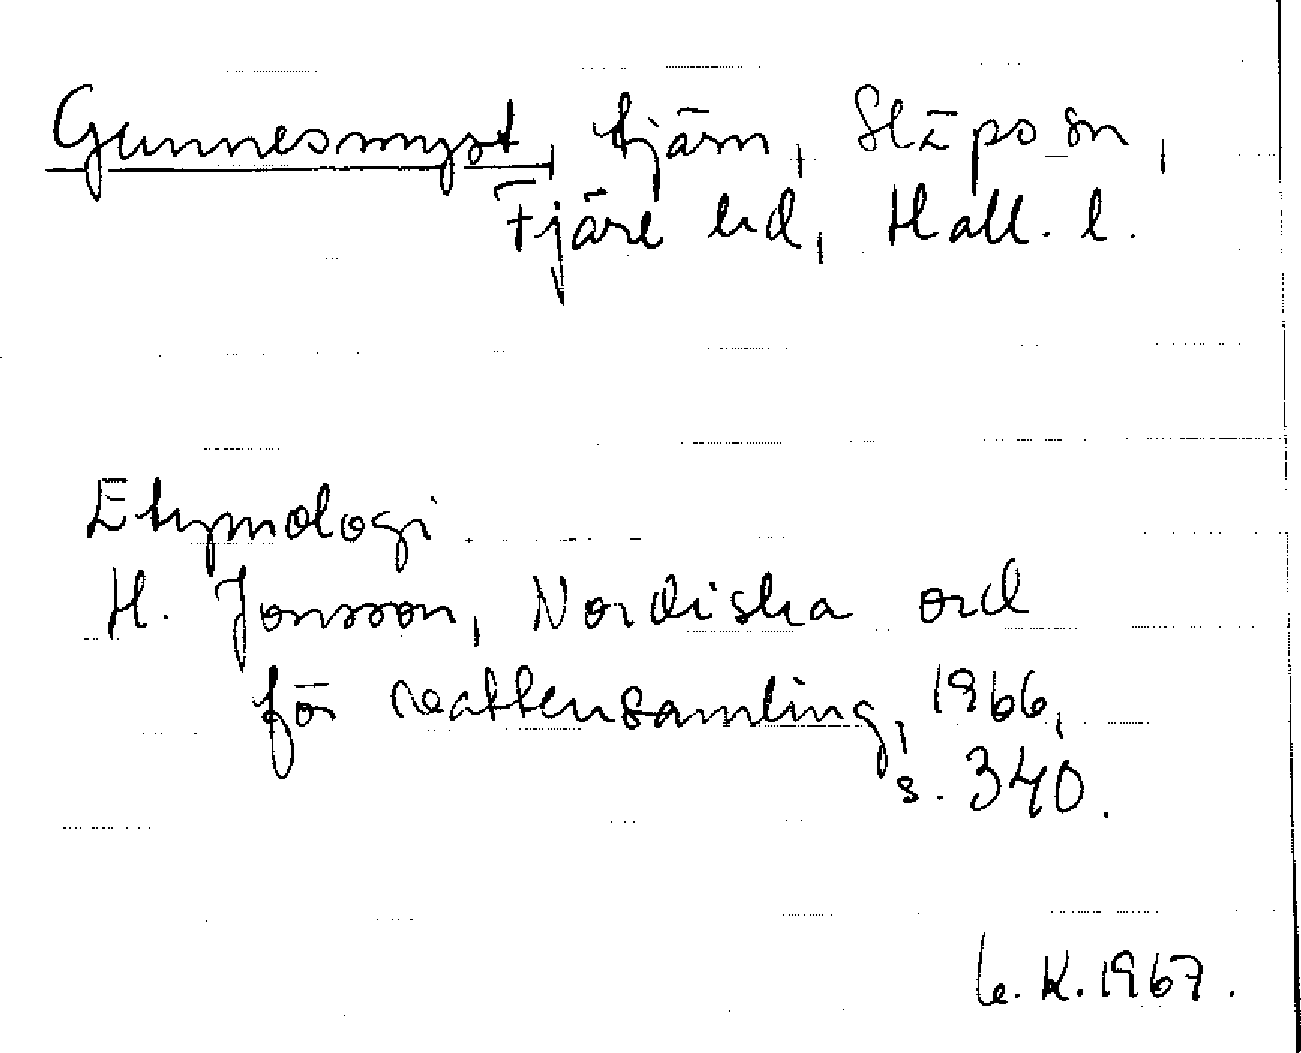 Gunnesmyst, tjärn, Släps sn,
Fjäre hd, Hall. l.
Etymologi.
H. Jonsson, Nordiska ord
för vattensamling, 1966,
s. 340.
K. 1967.